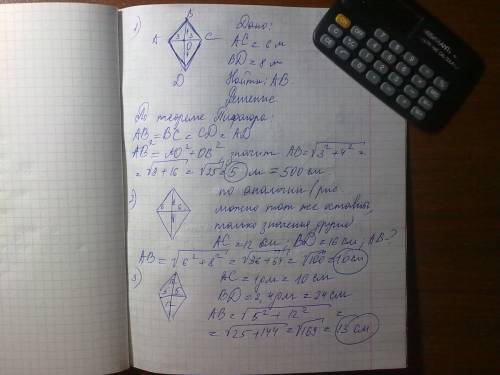 1)
B
A
3
3
C
O
D
Дано:
AC = 6 м
BD = 8 м
Найти: AB.
Решение
По теореме Пифагора:
AB = BC = CD = AD
AB² = AO² + OB² значит AB = √3² + 4² =
= √9 + 16 = √25 = 5 м = 500 см
2)
6
6
по аналогии (рис
можно тот же оставить,
только значения другие)
AC = 12 см; BD = 16 см; AB - ?
AB = √6² + 8² = √36 + 64 = √100 = 10 см
3)
5
5
12
AC = 1 дм = 10 см
BD = 2,4 дм = 24 см
AB = √5² + 12² =
= √25 + 144 = √169 = 13 см